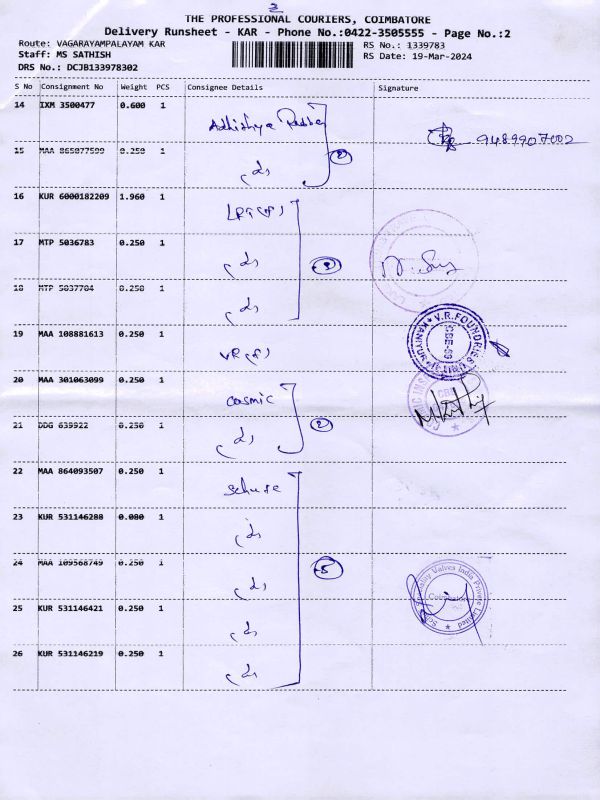 3
THE PROFESSIONAL COURIERS, COIMBATORE
Delivery Runsheet - KAR - Phone No.:0422-3505555 - Page No.:2
Route: VAGARAYAMPALAYAM KAR
RS No.: 1339783
Staff: MS SATHISH
RS Date: 19-Mar-2024
DRS No.: DCJB133978302
S No Consignment No Weight PCS Consignee Details Signature
14 IXM 3500477 0.600 1
9489907002
15 MAA 865077599 0.250 1
2
16 KUR 6000182209 1.960 1
17 MTP 5036783 0.250 1
3
18 MTP 5037704 0.250 1
19 MAA 108881613 0.250 1
V.R.FOUNDRIES
20 MAA 301063099 0.250 1 cosmic
21 DDG 639922 0.250 1
2
22 MAA 864093507 0.250 1
23 KUR 531146288 0.080 1
24 MAA 109568749 0.250 1
5
Valves India Private Limited
Coimbatore
25 KUR 531146421 0.250 1
26 KUR 531146219 0.250 1